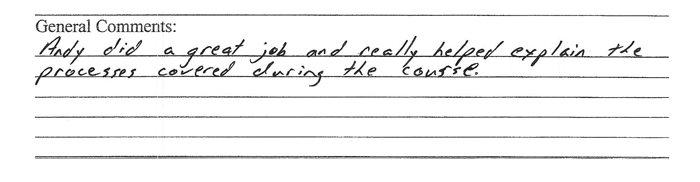 General Comments:
Andy did a great job and really helped explain the
processes covered during the course.